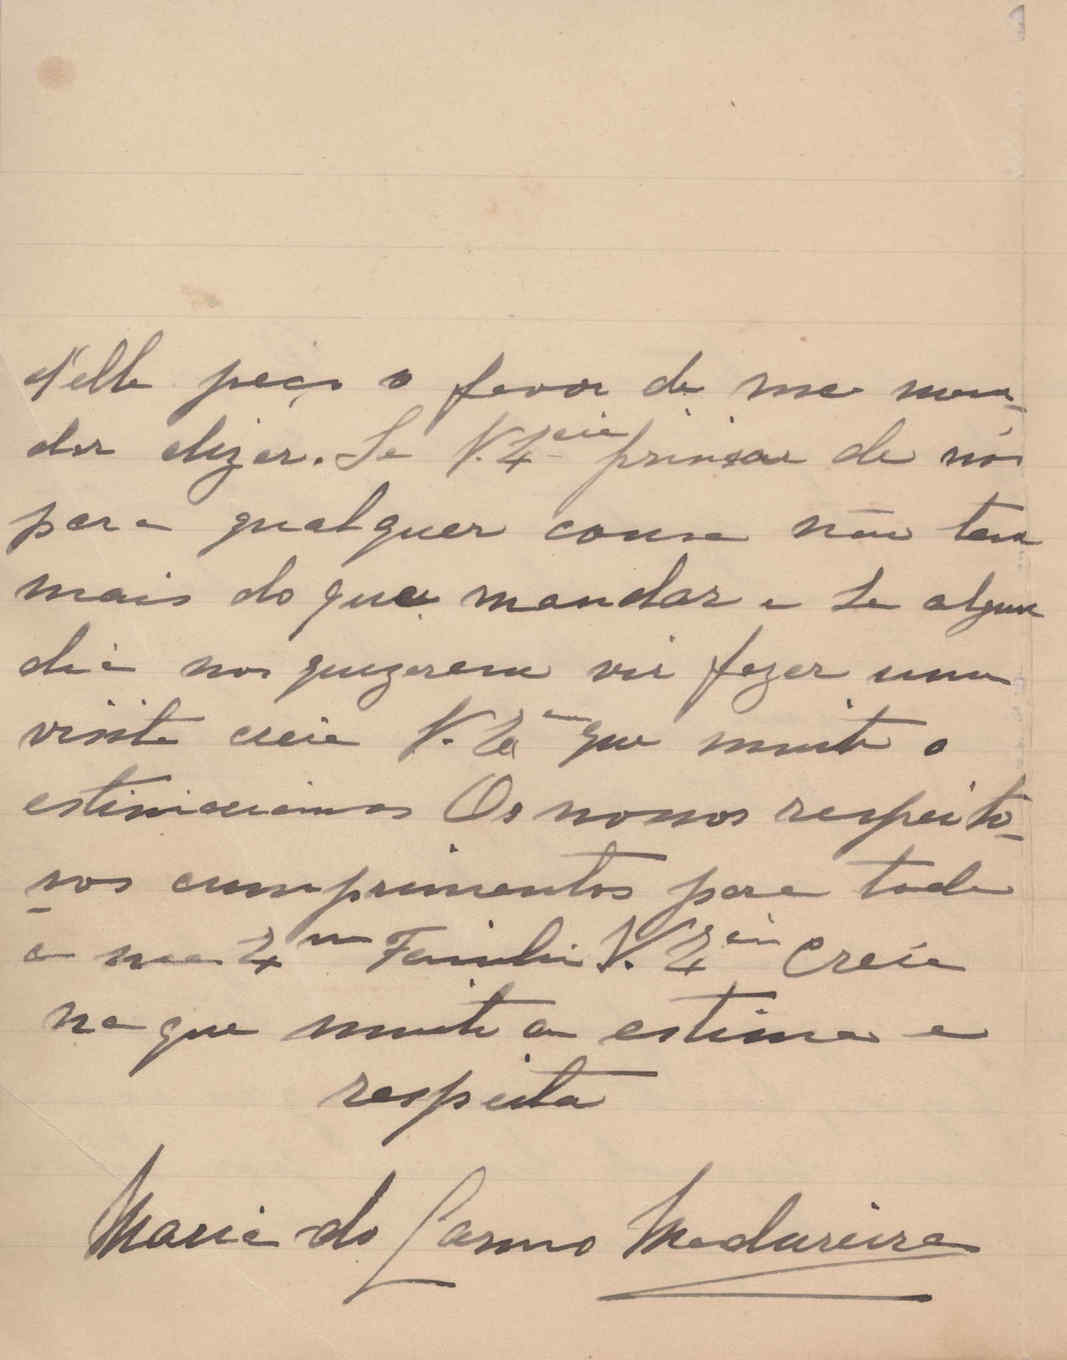 d'elle peço o favor de me man-
dar dizer. Se V. Excia precisar de nós
para qualquer cousa não tem
mais do que mandar e se algum
dia nos quizerem vir fazer uma
visita creia V. Exa que muito o
estimariamos Os nossos respeito-
sos cumprimentos para toda
a sua Exma Familia V. Excia creia
na que muito a estima e
respeita
Maria do Carmo Madureira